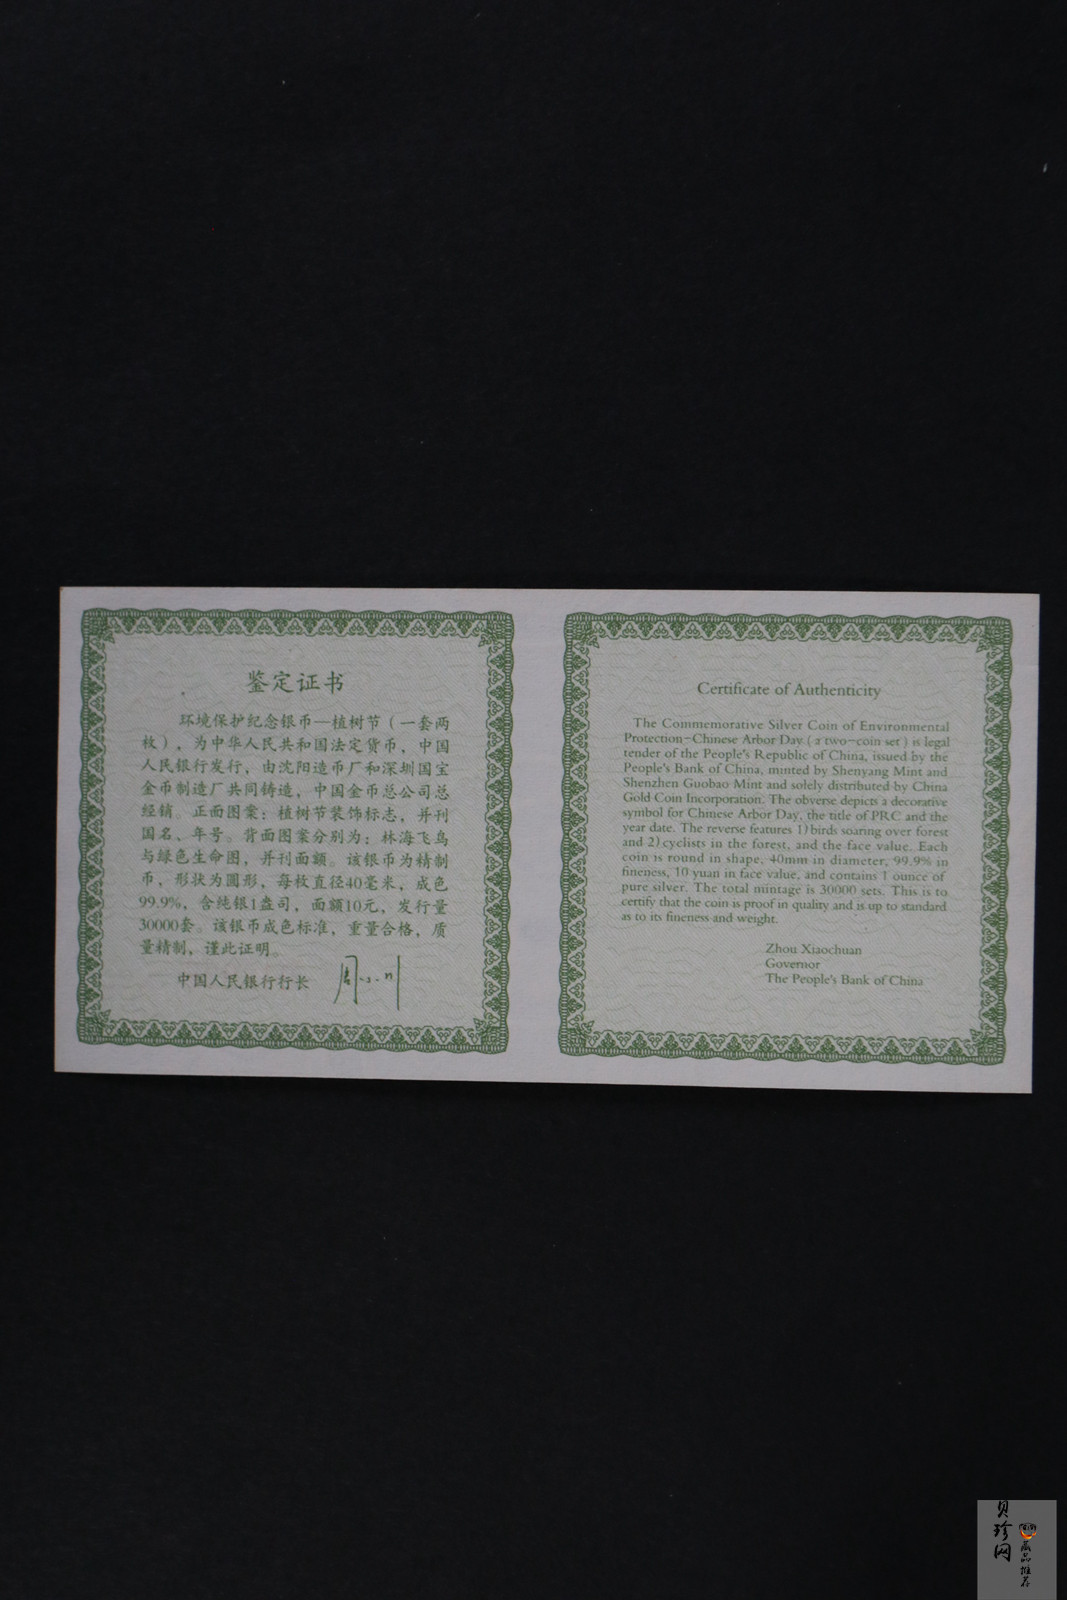 鉴定证书
环境保护纪念银币—植树节（一套两
枚），为中华人民共和国法定货币，中国
人民银行发行，由沈阳造币厂和深圳国宝
金币制造厂共同铸造，中国金币总公司总
经销。正面图案：植树节装饰标志，并刊
国名、年号。背面图案分别为：林海飞鸟
与绿色生命图，并刊面额。该银币为精制
币，形状为圆形，每枚直径40毫米，成色
99.9%，含纯银1盎司，面额10元，发行量
30000套。该银币成色标准，重量合格，质
量精制，谨此证明。
中国人民银行行长
Certificate of Authenticity
The Commemorative Silver Coin of Environmental
Protection-Chinese Arbor Day (a two-coin set) is legal
tender of the People's Republic of China, issued by the
People's Bank of China, minted by Shenyang Mint and
Shenzhen Guobao Mint and solely distributed by China
Gold Coin Incorporation. The obverse depicts a decorative
symbol for Chinese Arbor Day, the title of PRC and the
year date. The reverse features 1) birds soaring over forest
and 2) cyclists in the forest, and the face value. Each
coin is round in shape, 40mm in diameter, 99.9% in
fineness, 10 yuan in face value, and contains 1 ounce of
pure silver. The total mintage is 30000 sets. This is to
certify that the coin is proof in quality and is up to standard
as to its fineness and weight.
Zhou Xiaochuan
Governor
The People's Bank of China
贝珍网
藏品推荐